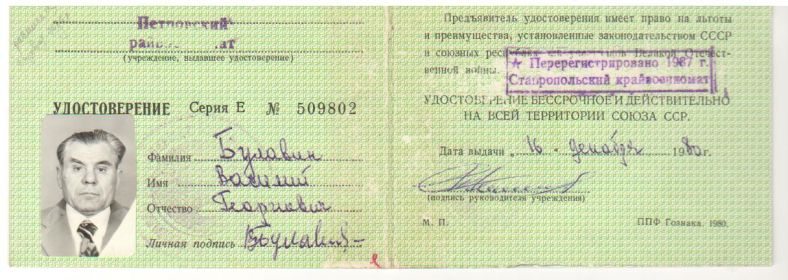 Петровский
райвоенкомат
(учреждение, выдавшее удостоверение)
УДОСТОВЕРЕНИЕ Серия Е № 509802
Фамилия Булавин
Имя Василий
Отчество Георгиевич
Личная подпись Булавин
Предъявитель удостоверения имеет право на льготы
и преимущества, установленные законодательством СССР
и союзных республик для участников Великой Отечест-
венной войны.
★ Перерегистрировано 1987 г.
Ставропольский крайвоенкомат
УДОСТОВЕРЕНИЕ БЕССРОЧНОЕ И ДЕЙСТВИТЕЛЬНО
НА ВСЕЙ ТЕРРИТОРИИ СОЮЗА ССР.
Дата выдачи „16 декабря 1980г.
(подпись руководителя учреждения)
М. П. ППФ Гознака. 1980.